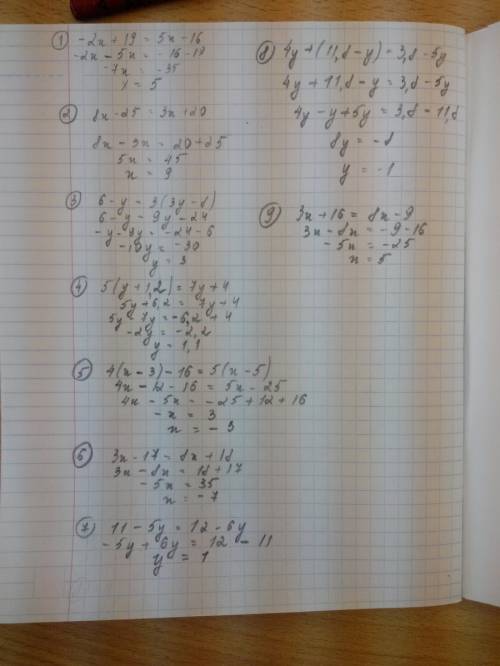 ① -2x + 19 = 5x - 16
-2x - 5x = -16 - 19
-7x = -35
x = 5
② 8x - 25 = 3x + 20
8x - 3x = 20 + 25
5x = 45
x = 9
③ 6 - y = 3(3y - 8)
6 - y = 9y - 24
-y - 9y = -24 - 6
-10y = -30
y = 3
④ 5(y + 1,2) = 7y + 4
5y + 6,2 = 7y + 4
5y - 7y = -6,2 + 4
-2y = -2,2
y = 1,1
⑤ 4(x - 3) - 16 = 5(x - 5)
4x - 12 - 16 = 5x - 25
4x - 5x = -25 + 12 + 16
-x = 3
x = -3
⑥ 3x - 17 = 8x + 18
3x - 8x = 18 + 17
-5x = 35
x = -7
⑦ 11 - 5y = 12 - 6y
-5y + 6y = 12 - 11
y = 1
⑧ 4y + (11,8 - y) = 3,8 - 5y
4y + 11,8 - y = 3,8 - 5y
4y - y + 5y = 3,8 - 11,8
8y = -8
y = -1
⑨ 3x + 16 = 8x - 9
3x - 8x = -9 - 16
-5x = -25
x = 5